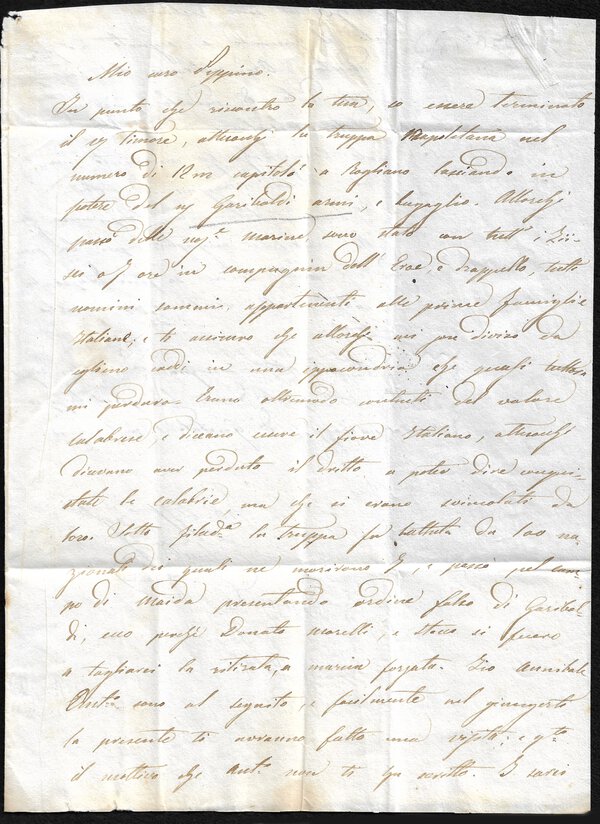 Mio caro Peppino.
In punto che riscontro la tua, so essere terminato
il timore, allorchè la truppa Napoletana nel
numero di 12m capitolò a Rogliano lasciando in
potere del Garibaldi armi, e bagaglio. Allorchè
passò dalle marine, sono stato con tutt' i Zii
sei ore in compagnia dell' Eroe, e drappello, tutti
uomini sommi, appartenenti alle prime famiglie
Italiane, e ti assicuro che allorchè mi divisi da
eglino caddi in una ippocondria che quasi
mi perdura. Erano oltremodo contenti del valore
Calabrese, e diceano essere il fiore Italiano, allorchè
diceano aver perduto il dritto a poter dire conqui-
state le Calabrie, ma che si erano svincolate da
loro. Sotto la truppa fu battuta da 100 na-
zionali dei quali ne morirono 7, e passò pel cam-
po di Maida presentando ordine falso di Garibal-
di, ecco perchè Donato Morelli, e Stocco si
a tagliarci la ritirata, a marcia forzata. Zio Annibale
sono al seguito, e facilmente nel giungerti
la presente ti avranno fatto una visita, e
il motivo che Ant.o non ti ha scritto.